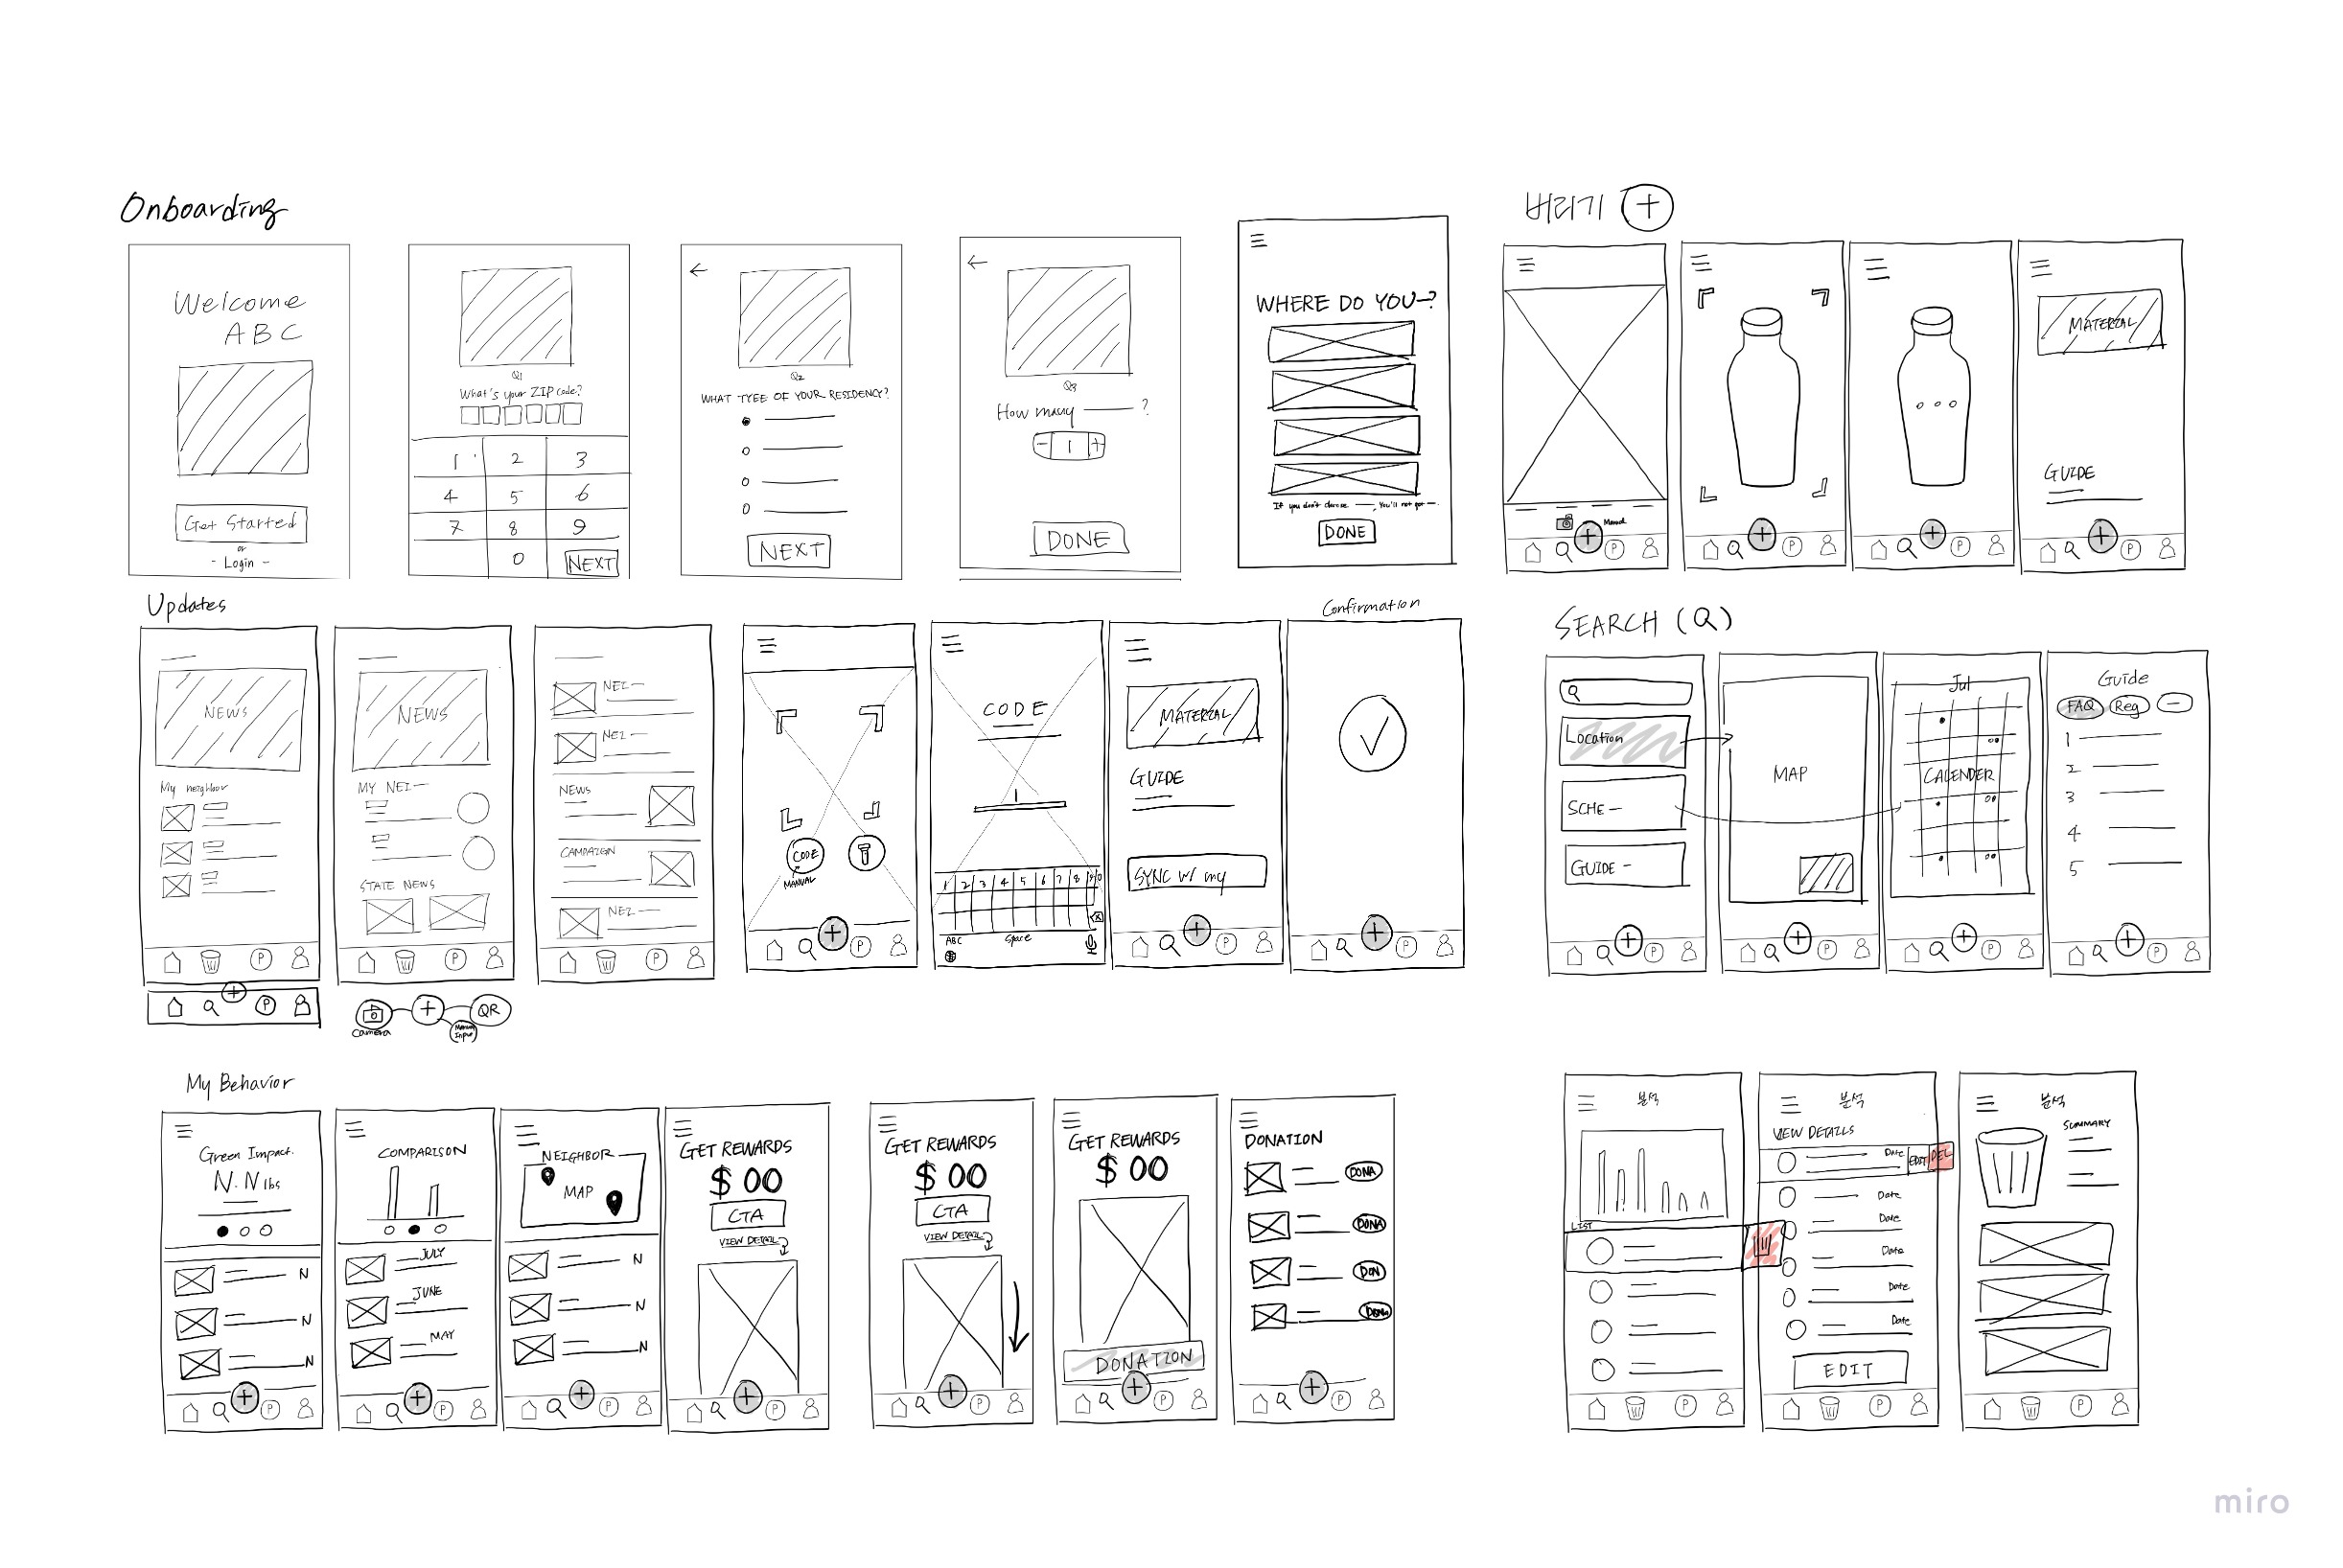 Onboarding
Welcome
ABC
Get Started
or
- Login -
Q1
What's your ZIP code?
1 2 3
4 5 6
7 8 9
0 NEXT
Q2
WHAT TYEE OF YOUR RESIDENCY?
NEXT
Q3
How many ?
- 1 +
DONE
WHERE DO YOU-?
If you don't choose —, You'll not got —.
DONE
버리기 +
Manual
+
P
+
P
+
P
MATERIAL
GUIDE
+
P
Updates
NEWS
My neighbor
P
+
P
NEWS
MY NEI—
STATE NEWS
P
Camera
+
QR
Manual
Input
NEI —
NEI —
NEWS
CAMPAIGN
NEI —
P
CODE
MANUAL
+
P
CODE
1 2 3 4 5 6 7 8 9 0
ABC
space
MATERIAL
GUIDE
SYNC w/ my
+
P
Confirmation
+
P
SEARCH (Q)
Location
SCHE —
GUIDE -
+
P
MAP
+
P
Jul
CALENDER
+
P
Guide
FAQ Reg —
1
2
3
4
5
+
P
My Behavior
Green Impact.
N.N lbs
N
N
N
+
P
COMPARISON
JULY
JUNE
MAY
+
P
NEIGHBOR
MAP
N
N
N
+
P
GET REWARDS
$ 00
CTA
VIEW DETAIL
+
P
GET REWARDS
$ 00
CTA
VIEW DETAIL
+
P
GET REWARDS
$ 00
DONATION
+
P
DONATION
DONA
DONA
DON
DONA
+
P
분석
LIST
P
분석
VIEW DETAILS
Date EDIT DEL
Date
Date
Date
Date
Date
EDIT
P
분석
SUMMARY
P
miro